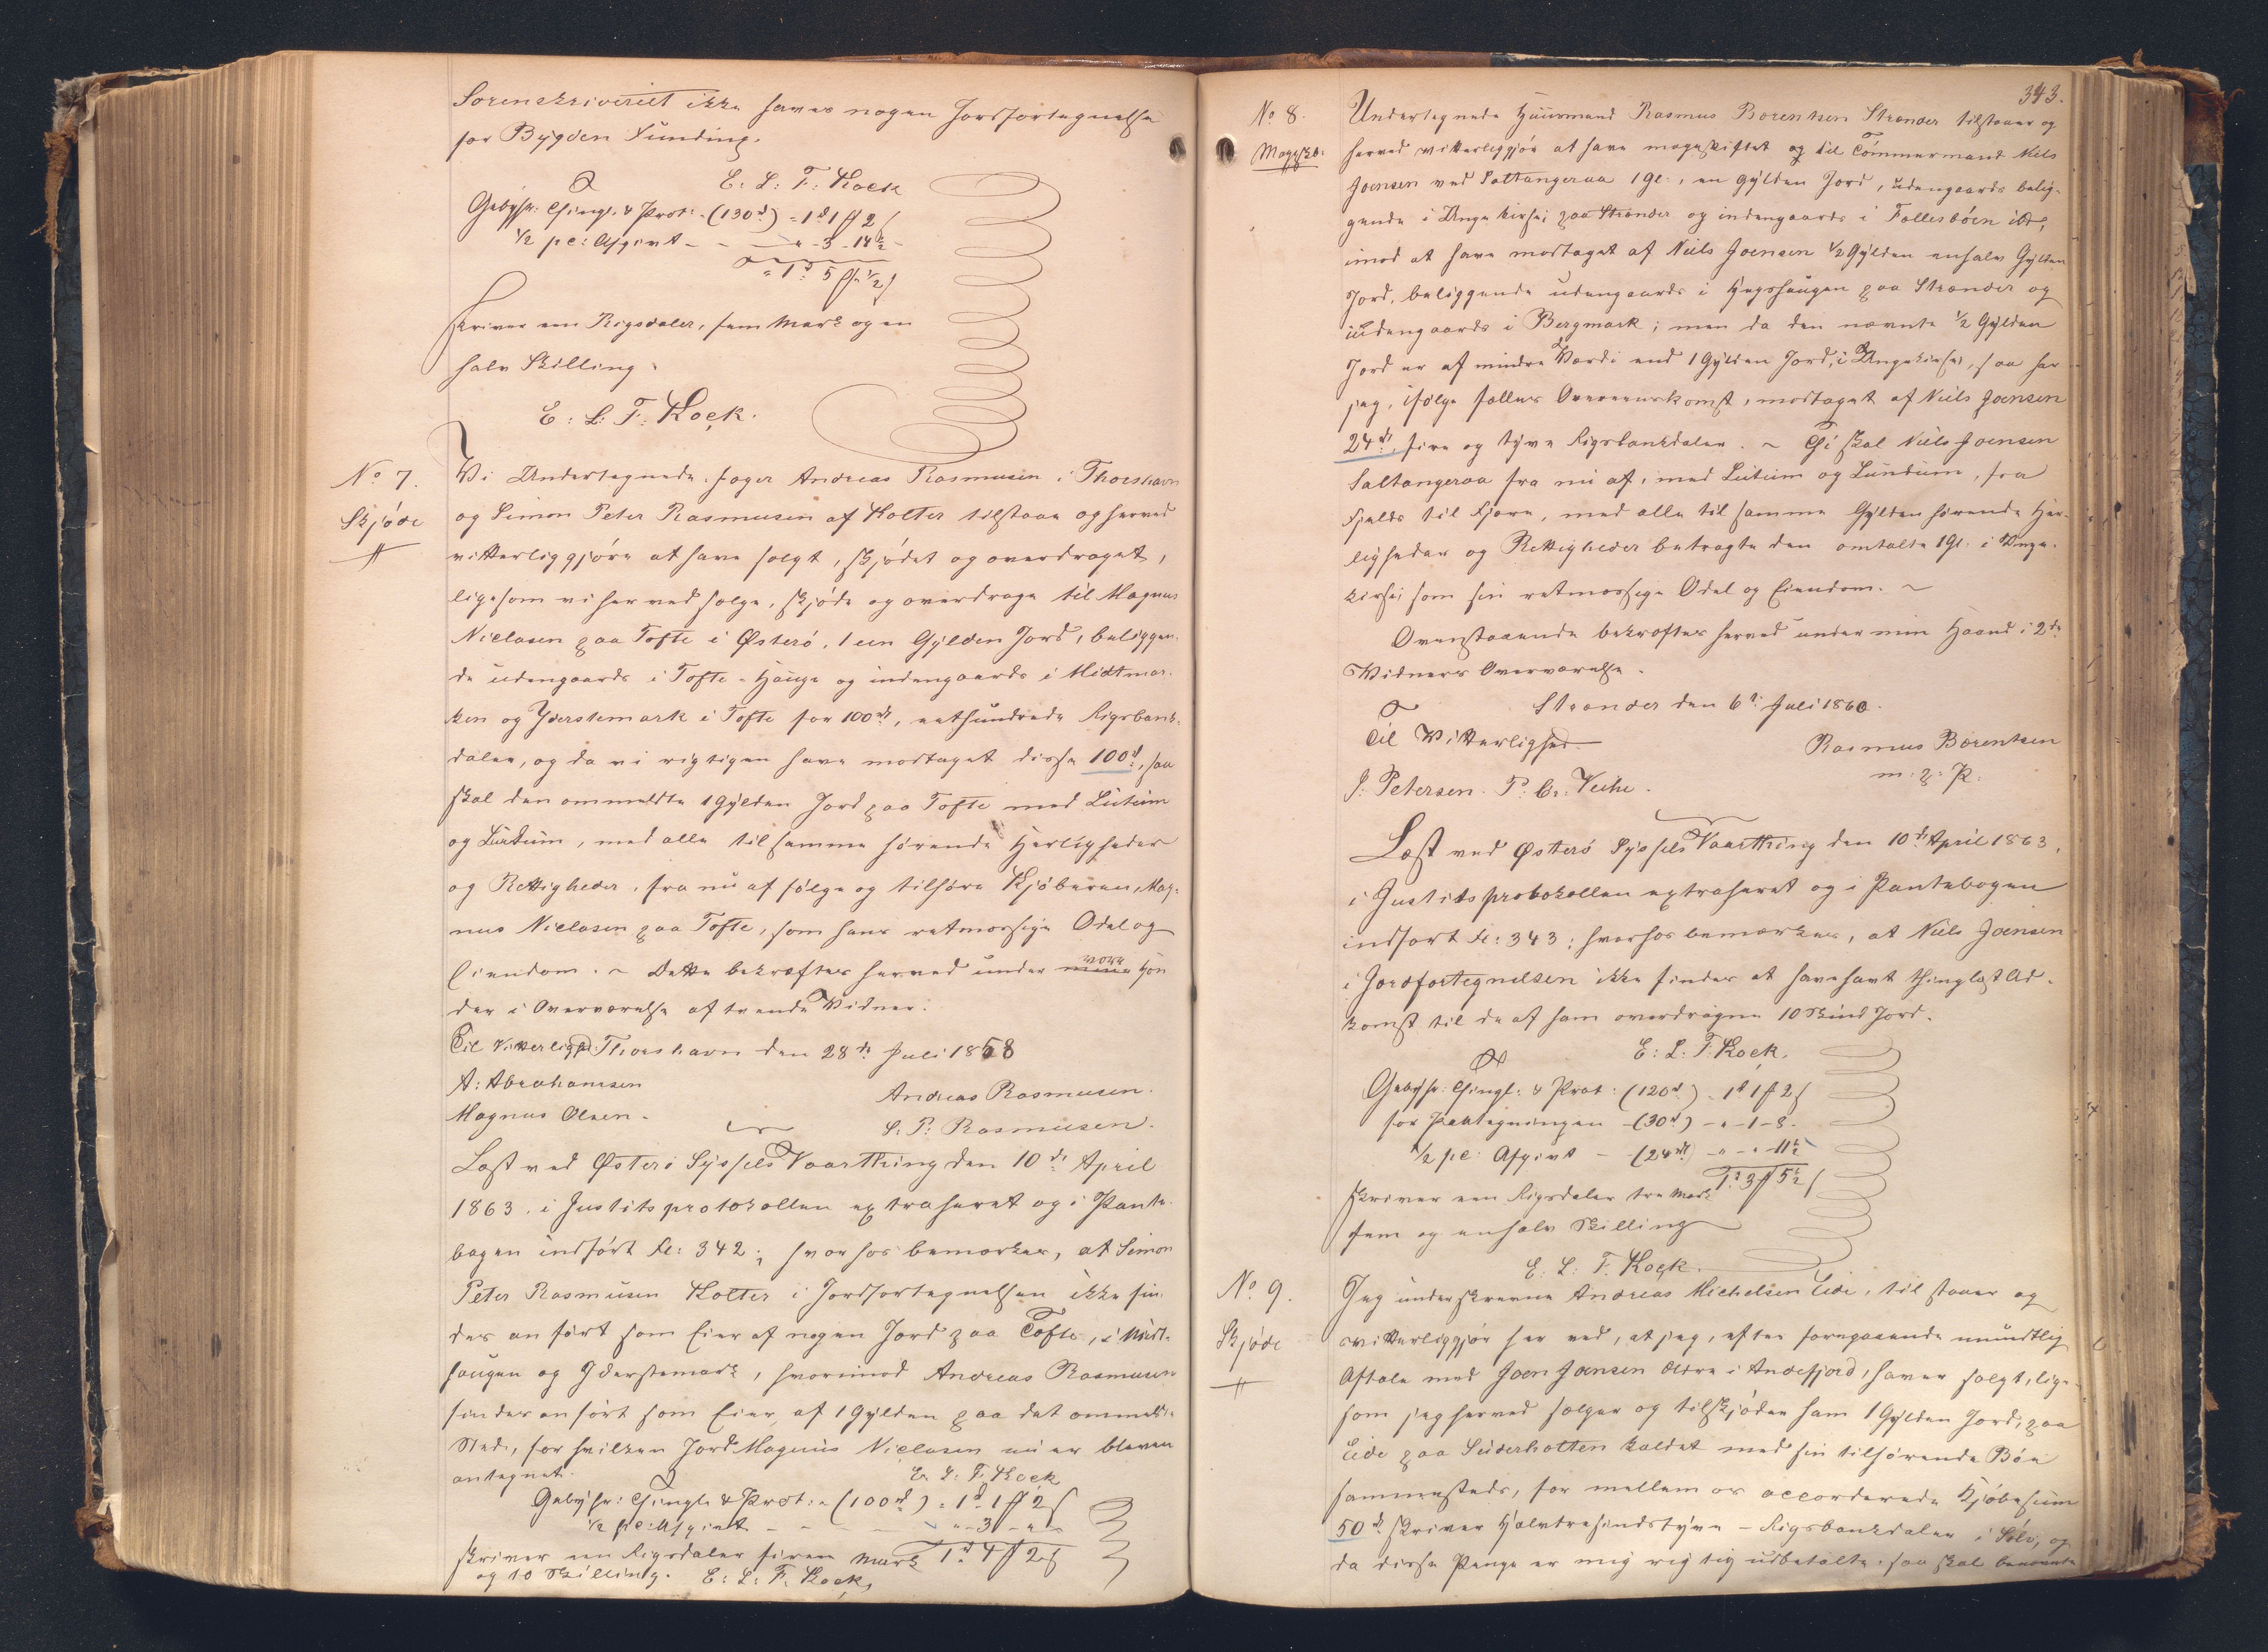 Sorenskriveriet ikke haves nogen Jordfortegnelse
for Bygden Funding.
E: L: F: Kock
Gebyhr: Thingl. & Prot: (130 rd) = 1 rd 1 ℔ 2 s
1/2 pc: Afgivt - - " - 3 - 14 1/2 -
= 1 rd 5 ℔ " 1/2 s
skriver een Rigsdaler, fem Mark og en
halv Skilling.
E: L: F: Kock.
No 7.
Skjöde
Vi Undertegnede, Jager Andreas Rasmusen i Thorshavn
og Simon Peter Rasmusen af Kolter tilstaae og herved
vitterliggjöre at have solgt, skjödet og overdraget,
ligesom vi herved sælge, skjöde og overdrage til Magnus
Niclasen paa Tofte i Österö, 1 een Gylden Jord, beliggen-
de udengaards i Tofte-Hauge og indengaards i Midtmar-
ken og Yderstemark i Tofte for 100 rd, eethundrede Rigsbank-
daler, og da vi rigtigen have modtaget disse 100 rd, saa
skal den ommeldte 1 Gylden Jord paa Tofte med Lutum
og Lundum, med alle til samme hörende Herligheder
og Rettigheder, fra nu af fölge og tilhöre Kjöberen, Mag-
nus Niclasen paa Tofte, som hans retmæssige Odel og
Eiendom. ~ Dette bekræftes herved under mine vore Hæn
der i Overværelse af tvende Vidner.
Til Vitterlighed. Thorshavn den 28 de Juli 1858
A: Abrahamsen
Andreas Rasmusen.
Magnus Olsen.
S. P: Rasmusen.
Læst ved Österö Syssels Vaarthing den 10 de April
1863, i Justitsprotokollen extraheret og i Pante-
bogen indfört Fol: 342; hvorhos bemærkes, at Simon
Peter Rasmusen Kolter i Jordfortegnelsen ikke fin-
des anfört som Eier af nogen Jord paa Tofte, i Midt-
haugen og Yderstemark, hvorimod Andreas Rasmusen
findes anfört som Eier af 1 Gylden paa det ommeldte
Sted, for hvilken Jord Magnus Niclasen nu er bleven
antegnet.
E. L: F. Kock
Gebyhr: Thingl: & Prot: - (100 rd) = 1 rd 1 ℔ 2 s
1/2 pc: Afgivt - - - " - 3 - " -
1 rd 4 ℔ 2 s
skriver een Rigsdaler fire Mark
og 10 Skilling. E: L: F. Kock,
343.
No 8.
Mageskb.
Undertegnede Huusmand Rasmus Borentsen Strænder tilstaaer og
herved vitterliggjör at have mageskiftet og til Tömmermand Niels
Joensen ved Saltangeraa 1 Gl:, en Gylden Jord, udengaards belig-
gende i Ungekirsei paa Strænder og indengaards i Fællesböen ibd;
imod at have modtaget af Niels Joensen 1/2 Gylden enhalv Gylden
Jord, beliggende udengaards i Hegshaugen paa Strænder og
indengaards i Bergmark; men da den nævnte 1/2 Gylden
Jord er af mindre Værdi end 1 Gylden Jord i Ungekirsei, saa har
jeg, ifölge fælles Overeenskomst, modtaget af Niels Joensen
24 rd, fire og tyve Rigsbankdaler. ~ Thi skal Niels Joensen
Saltangeraa fra nu af, med Lutum og Lundum, fra
Fjelds til Fjære, med alle til samme Gylden hörende Her-
ligheder og Rettigheder betragte den omtalte 1 Gl. i Unge-
kirsei som sin retmæssige Odel og Eiendom. ~
Ovenstaaende bekræftes herved under min Haand i 2de
Vidners Overværelse.
Strænder den 6 te Juli 1860.
Til Vitterlighed
Rasmus Börentsen
m. p. P.
J. Petersen. P. Chr. Veihe.
Læst ved Österö Syssels Vaarthing den 10 de April 1863,
i Justitsprotokollen extraheret og i Pantebogen
indfört Fol: 343; hvorhos bemærkes, at Niels Joensen
i Jordfortegnelsen ikke findes at have havt thinglæst Ad-
komst til de af ham overdragne 10 Skind Jord.
E: L: F. Kock.
Gebyhr: Thingl: & Prot: (120 rd) - 1 rd 1 ℔ 2 s
for Paategningen - (30 rd) - " - 1 - 8 -
1/2 pc: Afgivt - (24 rd) - " - " - 11 1/2
1 rd 3 ℔ 5 1/2 s
skriver een Rigsdaler tre Mark
fem og enhalv Skilling
E: L: F. Kock.
No 9.
Skjöde
Jeg underskrevne Andreas Michelsen Eide, tilstaaer og
vitterliggjör her ved, at jeg, efter foregaaende mundtlig
Aftale med Joen Joensen ældre i Andefjord, haver solgt, lige-
som jeg herved sælger og tilskjöder ham 1 Gylden Jord, paa
Eide paa Suderholten kaldet med sin tilhörende Böe
sammesteds, for mellem os accorderede Kjöbesum
50 rd skriver Halvtresindstyve - Rigsbankdaler i Sölv, og
da disse Penge er mig rigtig udbetalte, saa skal benævnte